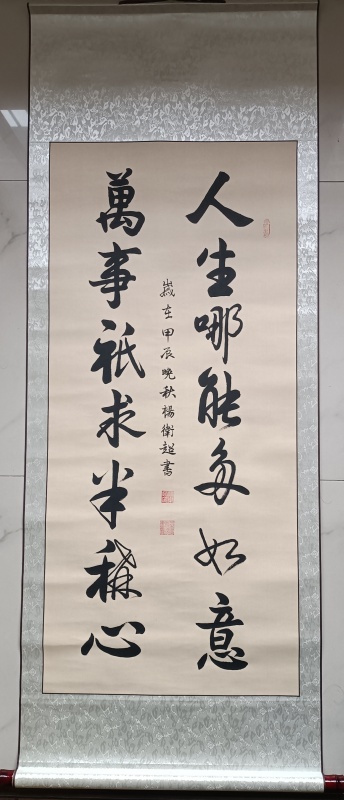 人生哪能多如意
萬事祇求半稱心
歲在甲辰晚秋楊衛超書